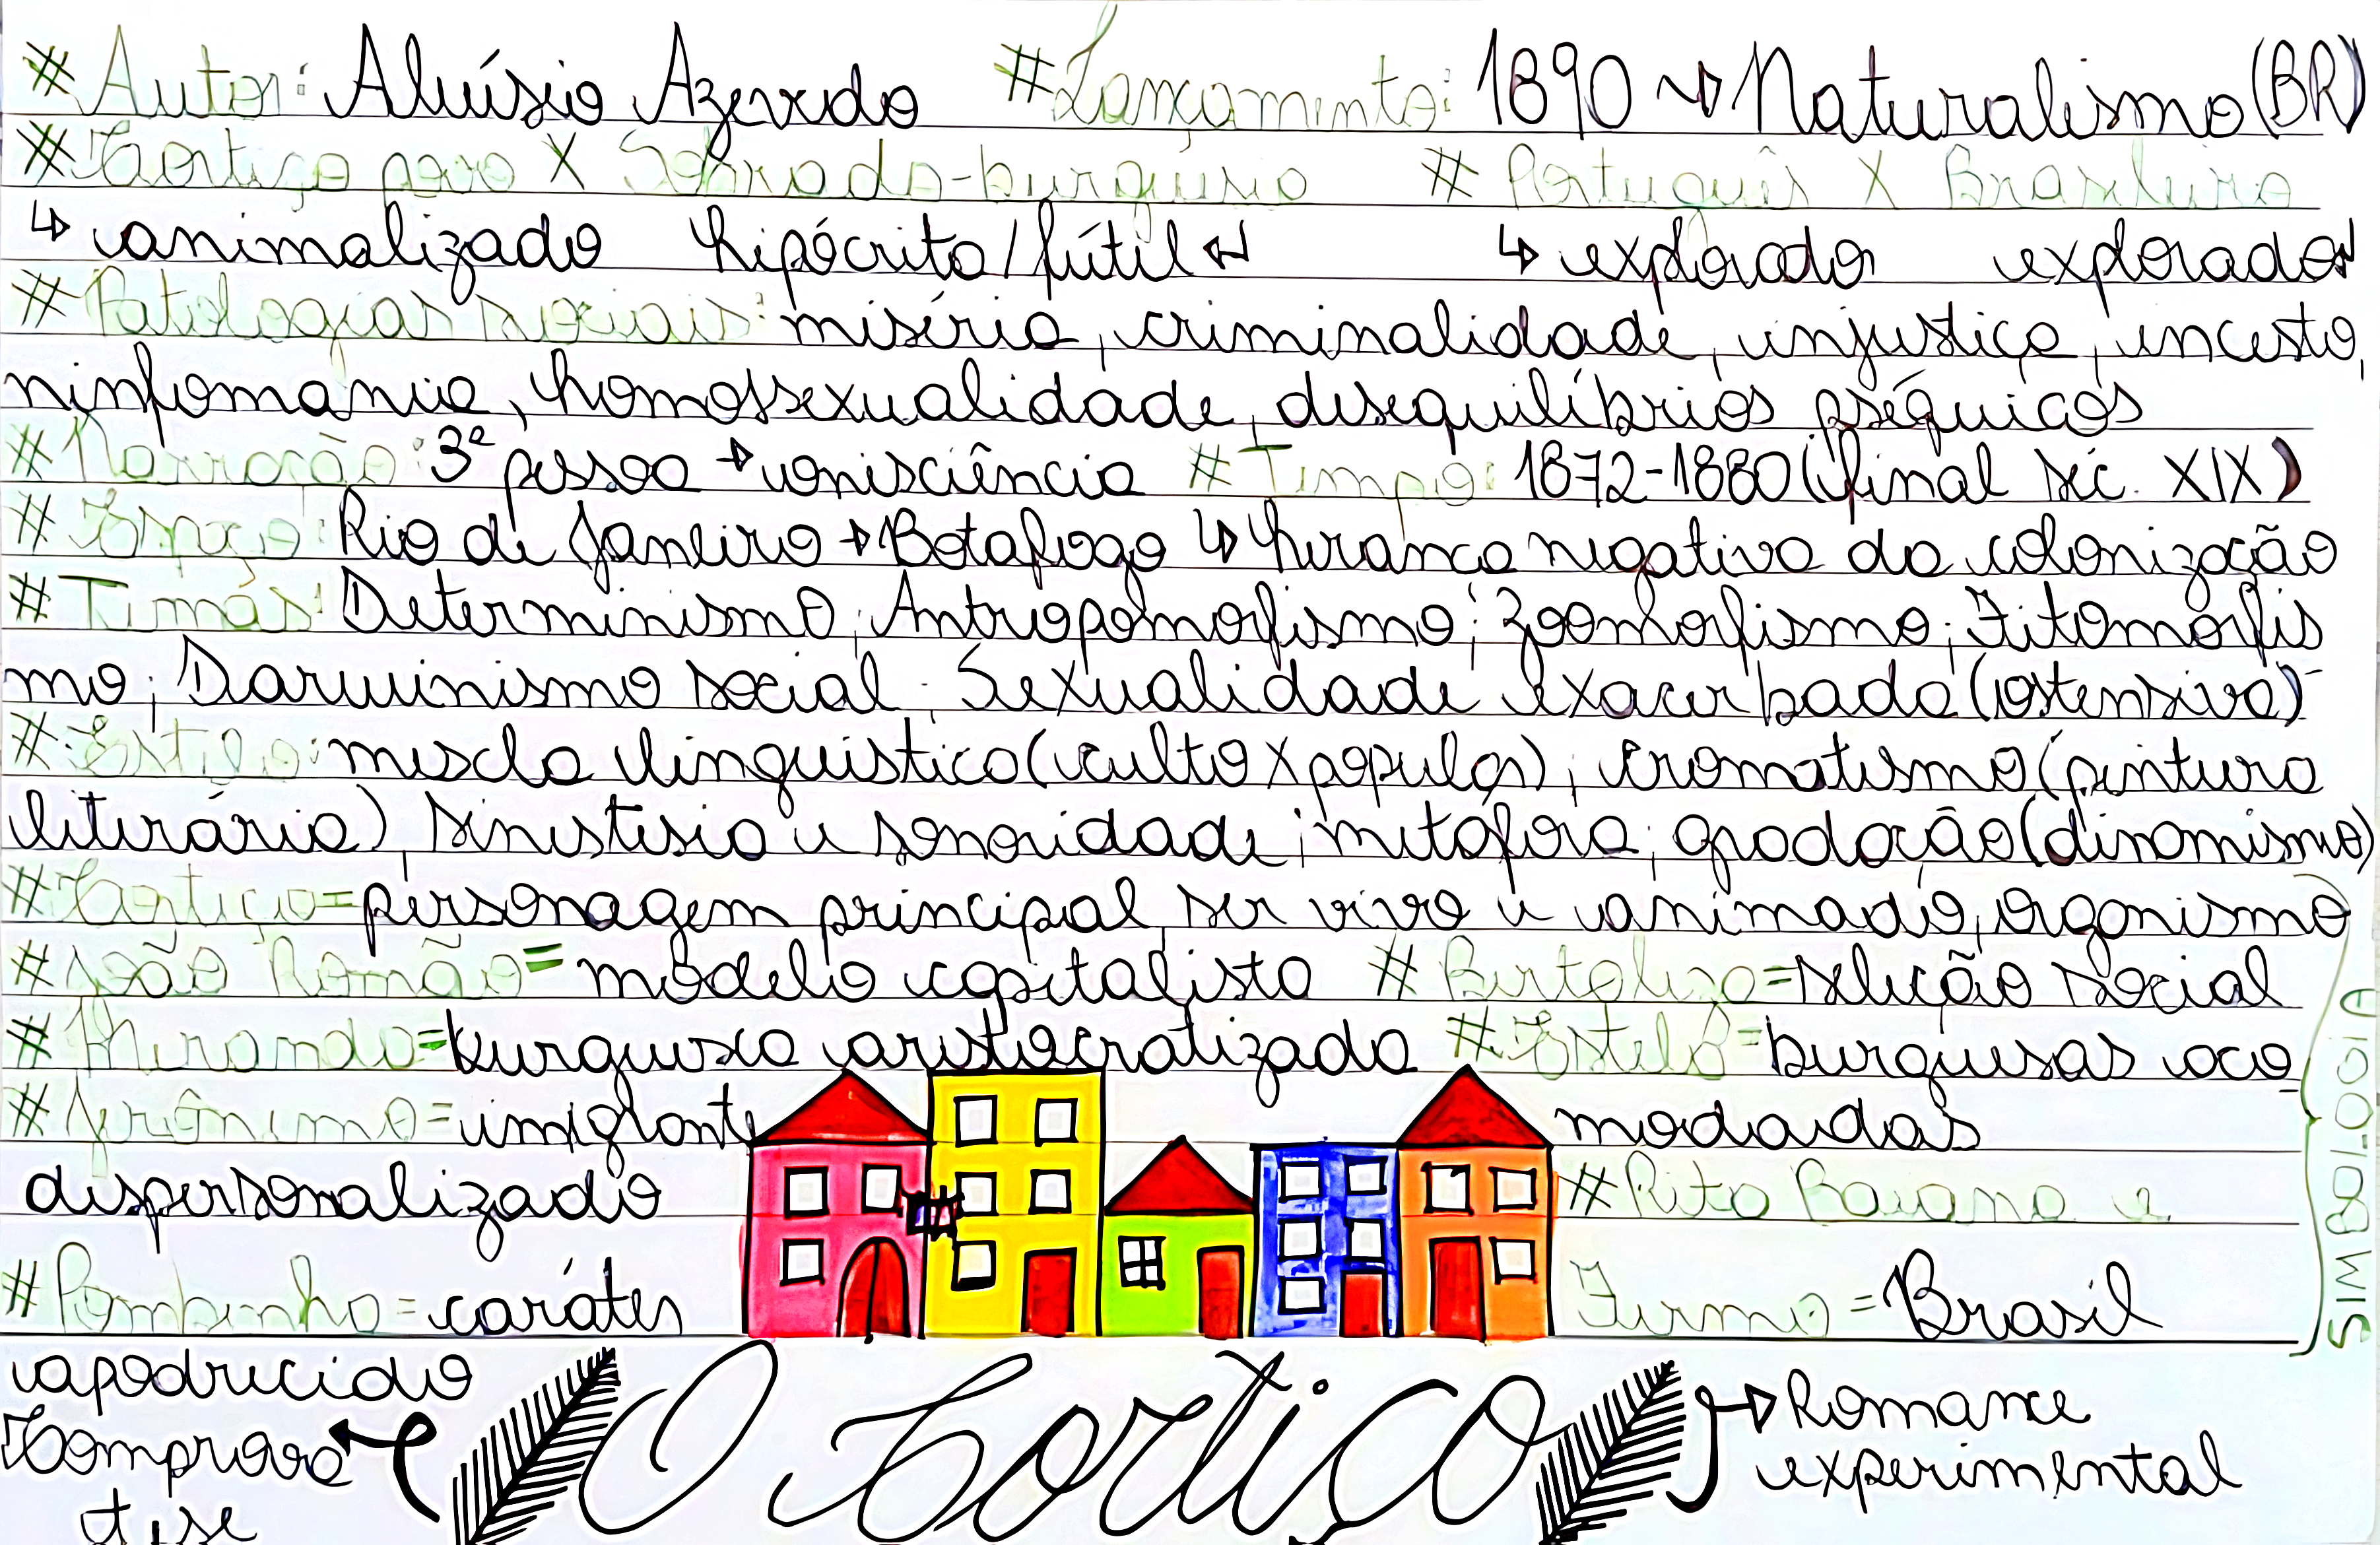 # Autor: Aluísio Azevedo # Lançamento: 1890 → Naturalismo (BR)
# Cortiço povo X Sobrado-burguesia # Português X Brasileiro
↳ animalizado hipócrita/fútil ↲ ↳ explorador explorado ↲
# Patologias sociais: miséria, criminalidade, injustiça, incesto,
ninfomania, homossexualidade, desequilíbrios psíquicos
# Narração: 3ª pessoa → onisciência # Tempo: 1872-1880 (final séc. XIX)
# Espaço: Rio de Janeiro → Botafogo ↳ herança negativa da colonização
# Temas: Determinismo; Antropomorfismo; Zoomorfismo; Fitomorfis
mo; Darwinismo social; Sexualidade exacerbada (ostensiva)
# Estilo: mescla linguística (culto X popular); cromatismo (pintura
literária), sinestesia e sonoridade; metáfora; gradação (dinamismo)
# Cortiço = personagem principal, ser vivo e animado, organismo
# João Romão = modelo capitalista # Bertoleza = seleção social
# Miranda = burguesia aristocratizada # Estela = burguesas aco
# Jerônimo = imigrante modadas
despersonalizado # Rita Baiana e
# Pombinha = caráter Firmo = Brasil
apodrecido
SIMBOLOGIA
Comprova tese
O Cortiço
→ Romance
experimental